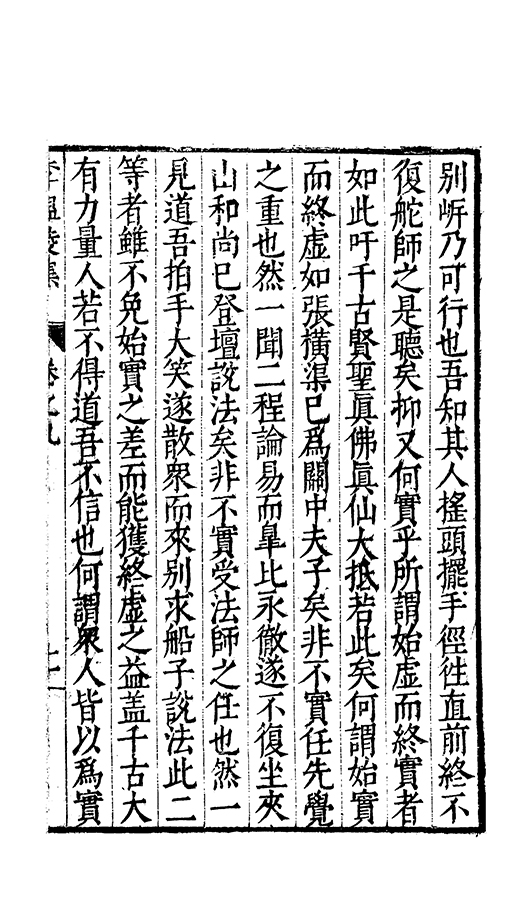 別峅乃可行也吾知其人搖頭擺手徑徃直前終不
復舵師之是聽矣抑又何實乎所謂始虛而終實者
如此吁千古賢聖眞佛眞仙大抵若此矣何謂始實
而終虛如張橫渠已爲關中夫子矣非不實任先覺
之重也然一聞二程論易而臯比永徹遂不復坐夾
山和尚已登壇說法矣非不實受法師之任也然一
見道吾拍手大笑遂散衆而來別求船子說法此二
等者雖不免始實之差而能獲終虛之益盖千古大
有力量人若不得道吾不信也何謂衆人皆以爲實
李溫陵集
卷之九
十一